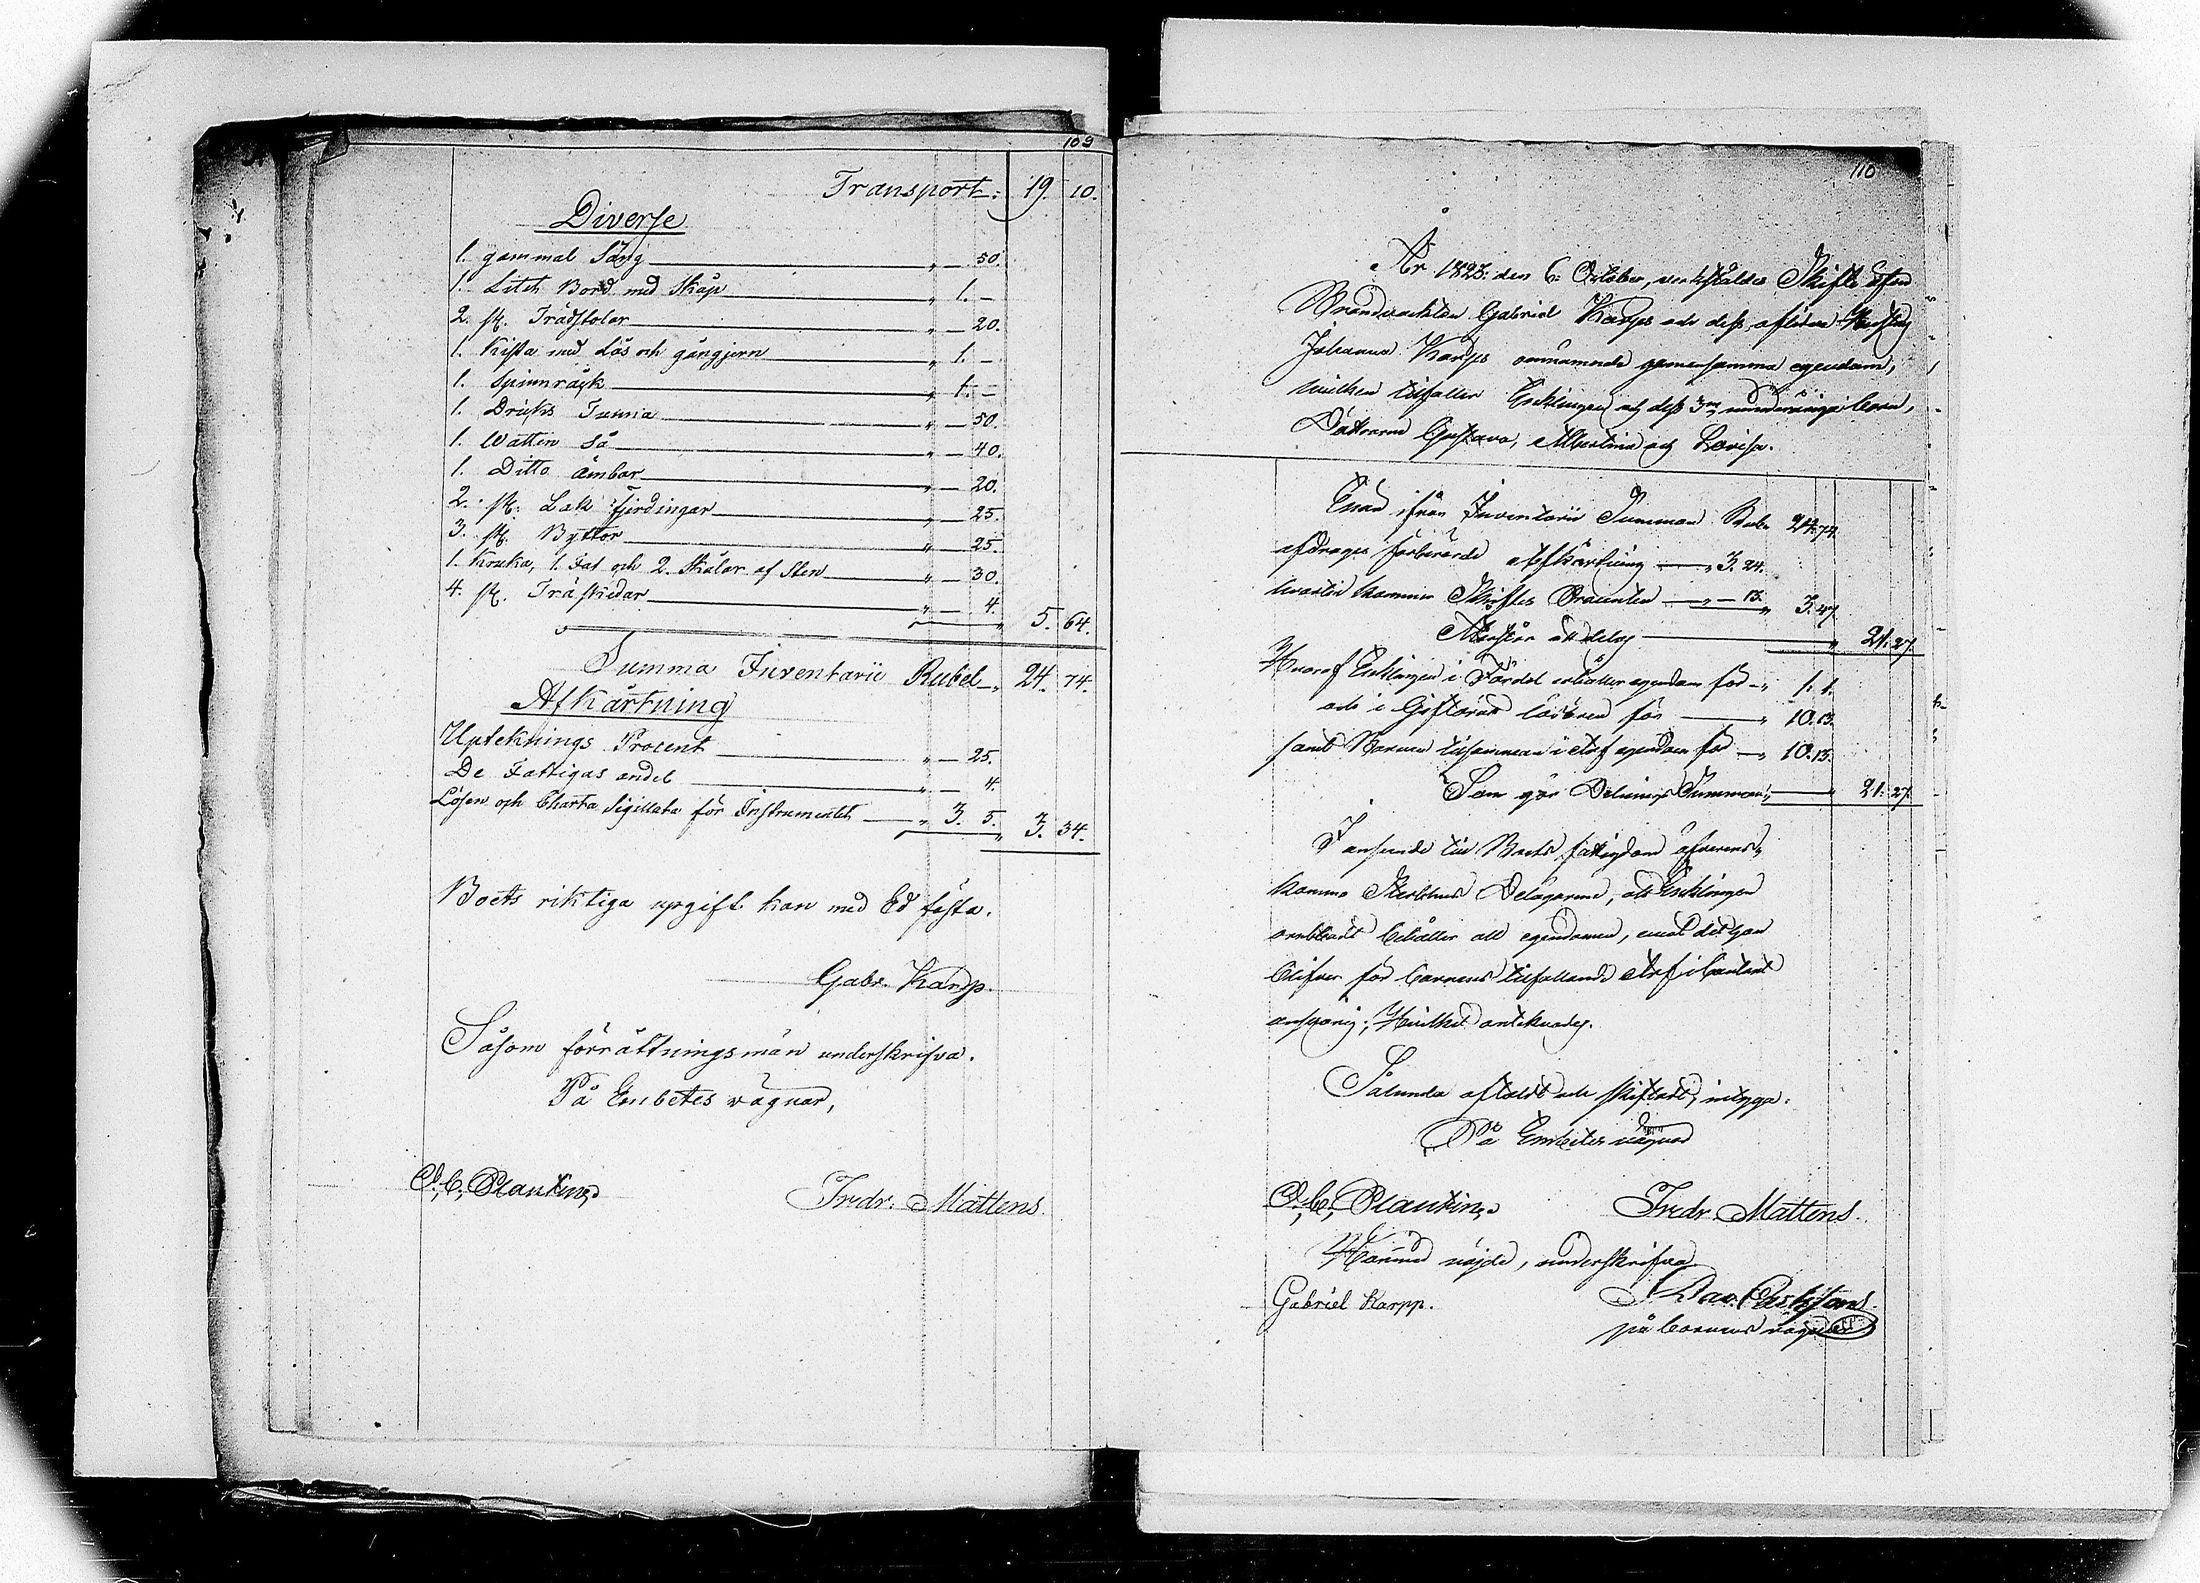 109
Transport 19. 10.
Diverse
1. gammal Säng " — 50.
1. Litet Bord med Skåp " 1. —
2. st. Trädstolar " — 20.
1. Kista med Lås och gångjern " 1. —
1. Spinnråck " 1. —
1. Dricks Tunna " — 50.
1. Watten Så " — 40.
1. Ditto Ämbar " — 20.
2. st. Lak fjerdingar " — 25.
3. st. Byttor " — 25.
1. Kruka, 1. Fat och 2. Skålar af Sten " — 30.
4. st. Träskedar " — 4. " 5. 64.
Summa Inventarii Rubel " 24. 74.
Afkårtning
Uptecknings Procent " — 25.
De Fattigas andel " — 4.
Lösen och Charta Sigillata för Instrumentet " 3. 5. " 3. 34.
Boets riktiga upgift kan med Ed fästa.
Gabr. Karp.
Såsom förrättningsmän underskrifva.
På Embetes vägnar,
O. C. Plantin
Fredr. Mattens
110
År 1823. den 6. October, verkstäldes Skifte efter
Brandvackten Gabriel Karps och dess aflidna Hustru
Johanna Karps gemensamma egendom,
hvilken tilfaller Enklingen och dess 3ne minderåriga barn,
Döttrarne Gustava, Albertina och Lovisa.
ifrån Inventarii Summan Rub. 24. 74.
afdrages förberörde afkårtning " 3. 34.
hvartil kommer Skiftes Procenten " — 13. " 3. 47.
Återstår att dela " 21. 27.
Hvaraf Enklingen i Fördel egendom för " 1. 1.
och i Giftorätt lösören för " 10. 13.
samt Barnen tilsamman i Arf egendom för " 10. 13.
Som gör Delnings Summan " 21. 27.
I anseende til Boets fattigdom öfverens-
kommo Sterbhus Delägarene, att Enklingen
behåller all egendomen, emot det han
blifver för barnens tilfallande Arf i Contant
ansvarig; Hvilket antecknades.
Sålunda aftaldt och skiftadt, intyga.
På Embetes vägnar
O. C. Plantin
Fredr. Mattens
Härmed nöjde, underskrifva
Gabriel Karpp.
på barnens vägnar